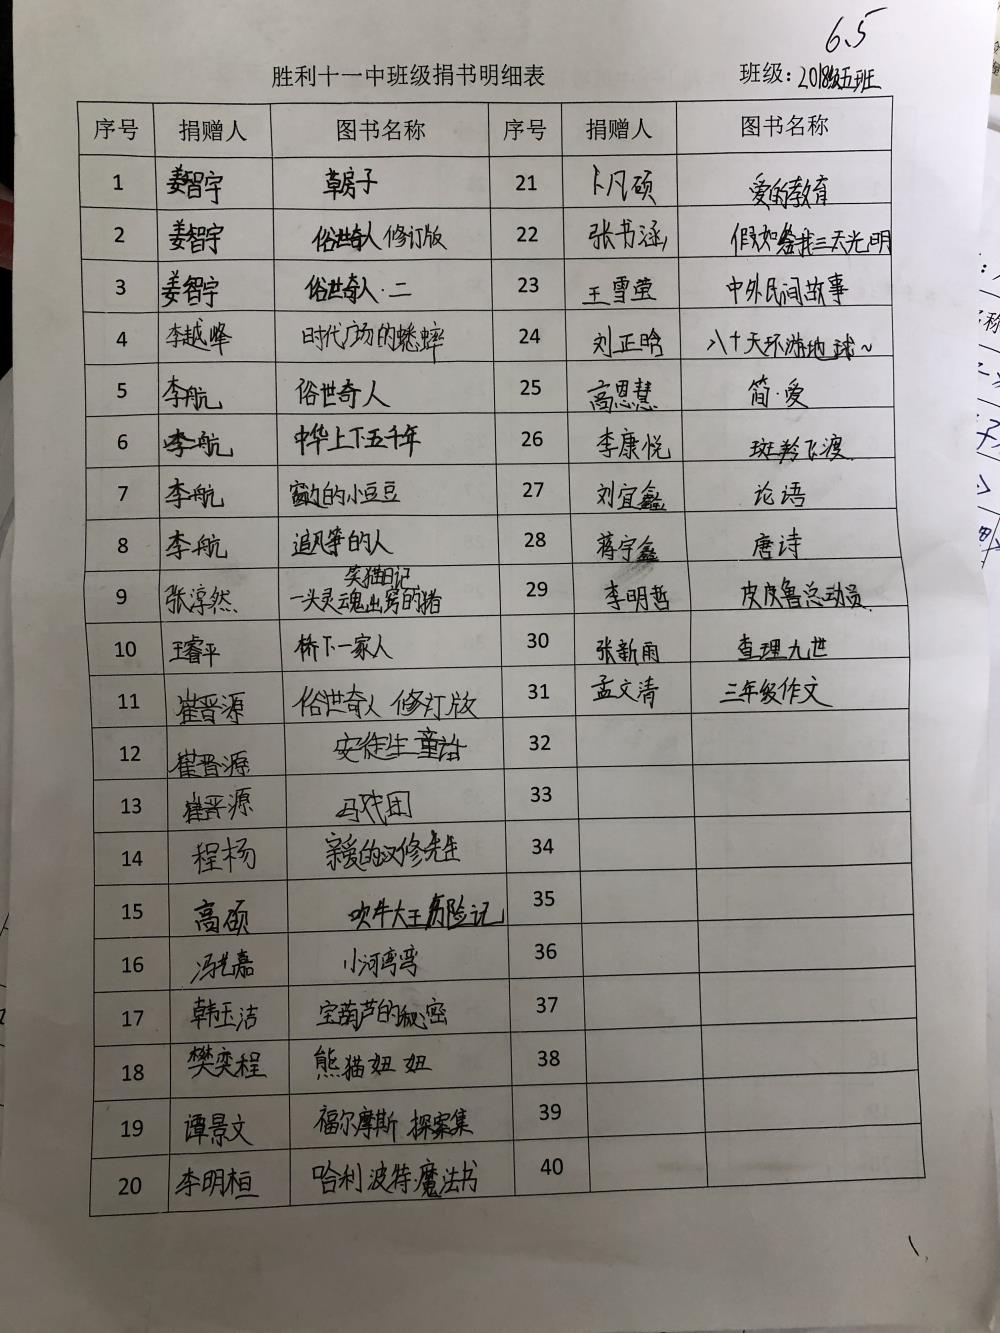 6.5
胜利十一中班级捐书明细表 班级：2018级五班
序号 捐赠人 图书名称 序号 捐赠人 图书名称
1 姜智宇 草房子 21 卞凡硕 爱的教育
2 姜智宇 俗世奇人 修订版 22 张书涵 假如给我三天光明
3 姜智宇 俗世奇人·二 23 王雪莹 中外民间故事
4 李越峰 时代广场的蟋蟀 24 刘正晗 八十天环游地球~
5 李航 俗世奇人 25 高恩慧 简·爱
6 李航 中华上下五千年 26 李康悦 斑羚飞渡
7 李航 窗边的小豆豆 27 刘宜鑫 论语
8 李航 追风筝的人 28 蒋宇鑫 唐诗
笑猫日记
9 张淳然 一头灵魂出窍的猪 29 李明哲 皮皮鲁总动员
10 王睿平 桥下一家人 30 张新雨 查理九世
11 崔晋源 俗世奇人 修订版 31 孟文清 三年级作文
12 崔晋源 安徒生童话 32
13 崔晋源 马戏团 33
14 程杨 亲爱的汉修先生 34
15 高硕 吹牛大王历险记 35
16 冯艺嘉 小河弯弯 36
17 韩玉洁 宝葫芦的秘密 37
18 樊奕程 熊猫妞妞 38
19 谭景文 福尔摩斯 探案集 39
20 李明桓 哈利波特·魔法书 40